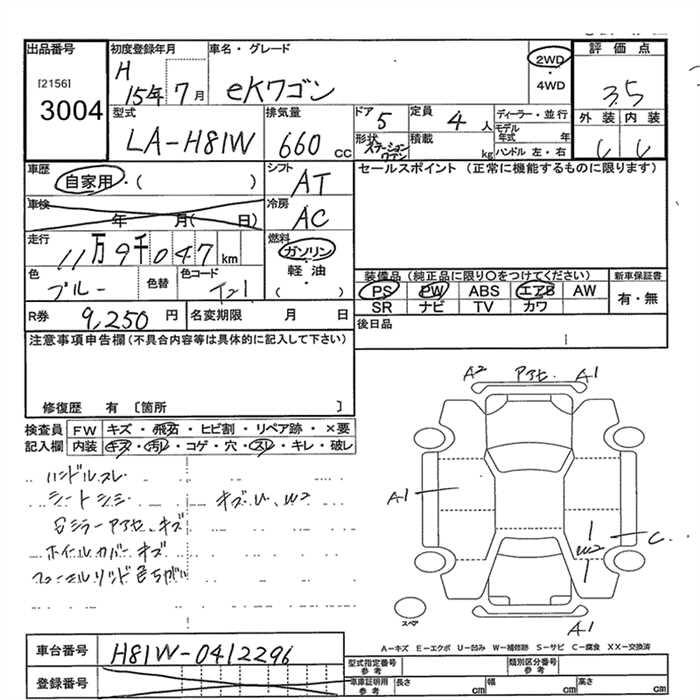 出品番号 初度登録年月 車名・グレード 評価点
[2156] H 15年 7月 eKワゴン 2WD・4WD 3.5
3004
型式 排気量 ドア 定員 ディーラー・並行 外装 内装
LA-H81W 660cc 5 4人 モデル年式 年
形状 ステーションワゴン 積載 kg ハンドル 左・右
車歴 自家用・( ) シフト AT セールスポイント (正常に機能するものに限ります)
車検 年 月( 日) 冷房 AC
走行 11万9千047km 燃料 ガソリン・軽油・( )
色 ブルー 色替 色コード
装備品(純正品に限り○をつけてください) 新車保証書
PS PW ABS エアB AW 有・無
SR ナビ TV カワ
R券 9,250円 名変期限 月 日 後日品
注意事項申告欄(不具合内容等は具体的に記入して下さい)
修復歴 有 [箇所 ]
検査員記入欄 FW キズ・飛石・ヒビ割・リペア跡・×要
内装 キズ・汚れ・コゲ・穴・スレ・キレ・破レ
A2 アセ A1
ハンドルスレ
シートシミ キズU、W2
A1
Sミラーアセ、キズ
ホイールカバーキズ W2 C
フューエルリッド色ちがい
スペア
A1
A-キズ E-エクボ U-凹み W-補修跡 S-サビ C-腐食 XX-交換済
車台番号 H81W-0412296
登録番号
型式指定番号 参考 類別区分番号 参考
車庫証明用 参考 長さ cm 幅 cm 高さ cm